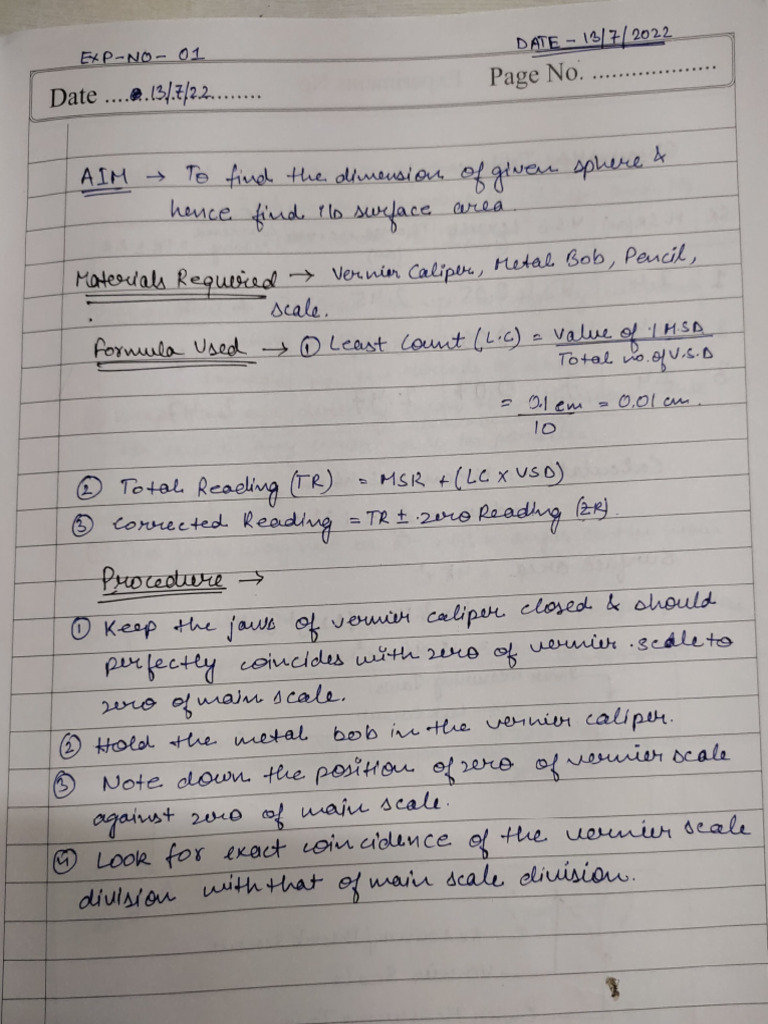 EXP-NO- 01
DATE - 13/7/2022
Date .... 13/7/22........
Page No. ...................
AIM → To find the dimension of given sphere &
hence find its surface area.
Materials Required → Vernier Caliper, Metal Bob, Pencil,
scale.
Formula Used → ① Least Count (L.C) = Value of 1 M.S.D
Total no. of V.S.D
= 0.1 cm = 0.01 cm.
10
② Total Reading (TR) = MSR + (LC X VSD)
③ Corrected Reading = TR ± zero Reading (ZR).
Procedure →
① Keep the jaws of vernier caliper closed & should
perfectly coincides with zero of vernier scale to
zero of main scale.
② Hold the metal bob in the vernier caliper.
③ Note down the position of zero of vernier scale
against zero of main scale.
④ Look for exact coincidence of the vernier scale
division with that of main scale division.